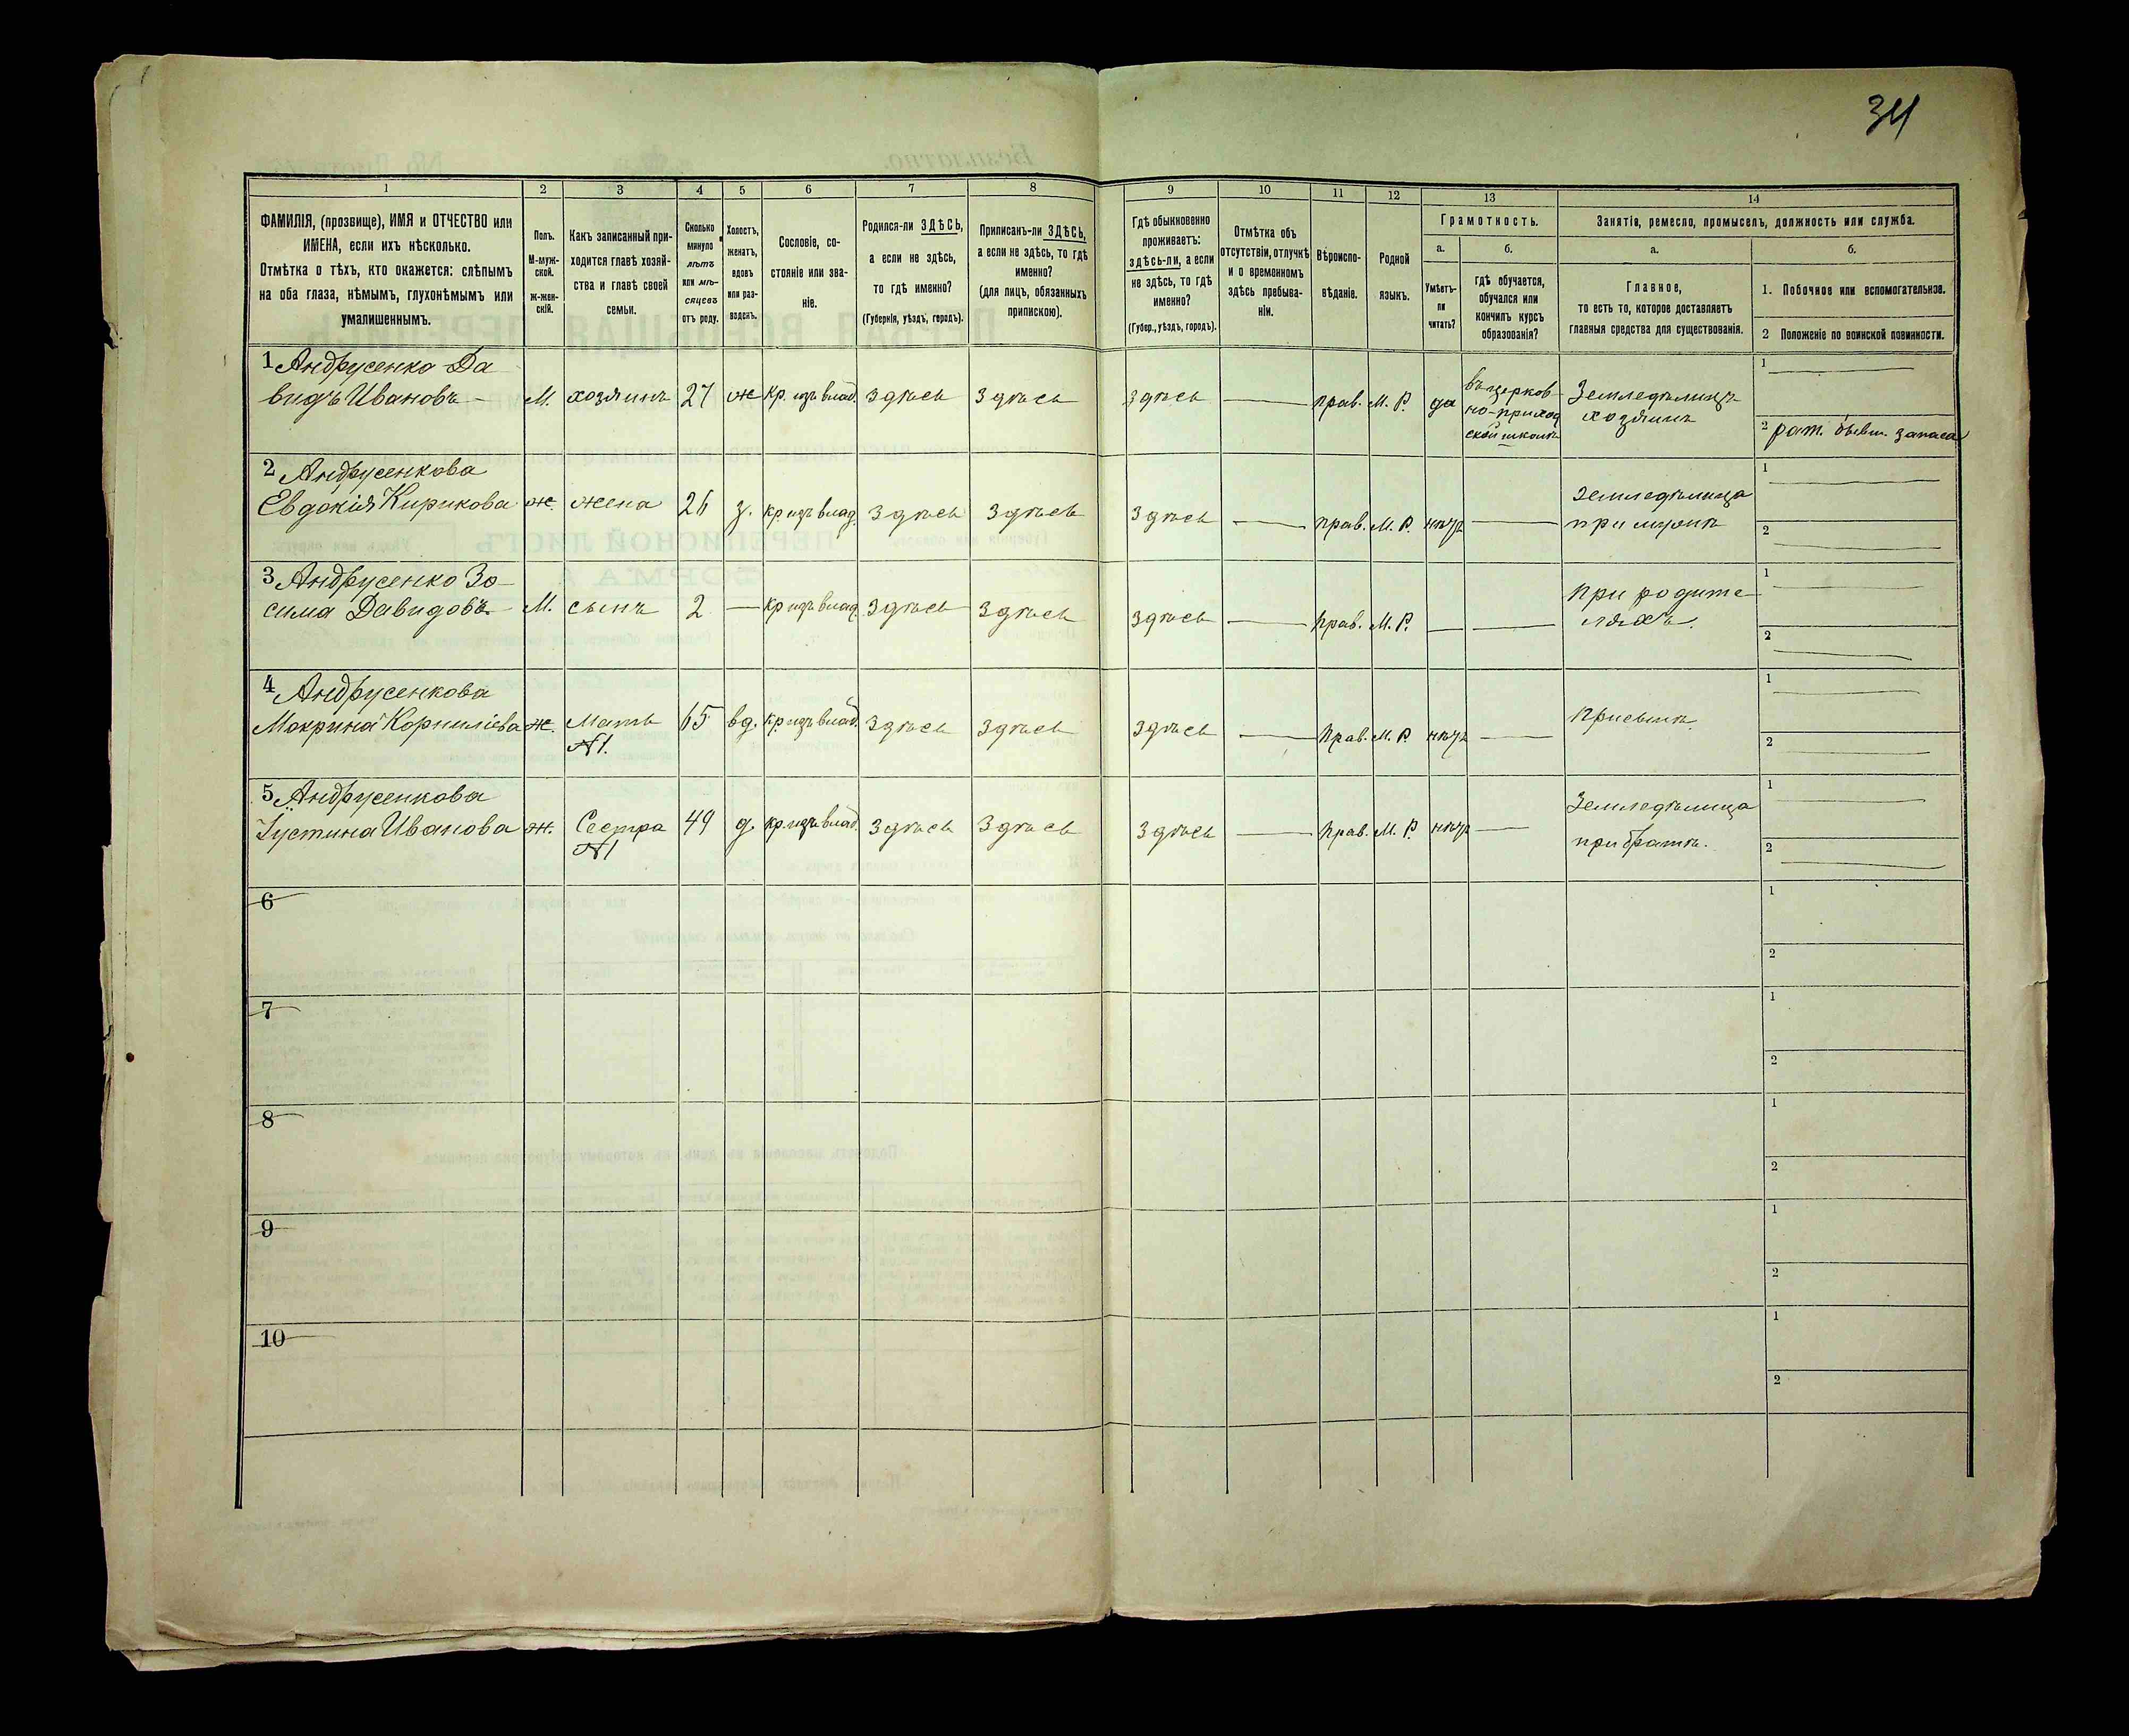 34
1 2 3 4 5 6 7 8 9 10 11 12 13 14
ФАМИЛІЯ, (прозвище), ИМЯ и ОТЧЕСТВО или
ИМЕНА, если ихъ нѣсколько.
Отмѣтка о тѣхъ, кто окажется: слѣпымъ
на оба глаза, нѣмымъ, глухонѣмымъ или
умалишеннымъ.
Полъ.
М-муж-
ской.
Ж-жен-
скій.
Какъ записанный при-
ходится главѣ хозяй-
ства и главѣ своей
семьи.
Сколько
минуло
лѣтъ
или мѣ-
сяцевъ
отъ роду.
Холостъ,
женатъ,
вдовъ
или раз-
веденъ.
Сословіе, со-
стояніе или зва-
ніе.
Родился-ли ЗДѢСЬ,
а если не здѣсь,
то гдѣ именно?
(Губернія, уѣздъ, городъ).
Приписанъ-ли ЗДѢСЬ,
а если не здѣсь, то гдѣ
именно?
(для лицъ, обязанныхъ
припискою).
Гдѣ обыкновенно
проживаетъ:
здѣсь-ли, а если
не здѣсь, то гдѣ
именно?
(Губер., уѣздъ, городъ).
Отмѣтка объ
отсутствіи, отлучкѣ
и о временномъ
здѣсь пребыва-
ніи.
Вѣроиспо-
вѣданіе.
Родной
языкъ.
Грамотность.
а.
Умѣетъ-
ли
читать?
б.
гдѣ обучается,
обучался или
кончилъ курсъ
образованія?
Занятія, ремесло, промыселъ, должность или служба.
а.
Главное,
то есть то, которое доставляетъ
главныя средства для существованія.
б.
1. Побочное или вспомогательное.
2 Положеніе по воинской повинности.
1 Андрусенко Да
видъ Ивановъ - М. хозяинъ 27 ж кр. изъ влад. здѣсь здѣсь здѣсь — прав. М. Р. да въ церков-
но-приход
ской школѣ
Земледѣлецъ
хозяинъ
1 —
2 рат. бывш. запаса
2 Андрусенкова
Евдокія Кирикова ж. жена 26 з. кр. изъ влад. здѣсь здѣсь здѣсь — прав. М. Р. нѣтъ —
земледѣлица
при мужѣ
1 —
2 —
3 Андрусенко Зо-
сима Давидовъ М. сынъ 2 — кр изъ влад. здѣсь здѣсь здѣсь — прав. М. Р. — —
при родите-
ляхъ.
1 —
2 —
4 Андрусенкова
Макрина Корниліева ж. Мать 65 вд. кр. изъ влад. здѣсь здѣсь здѣсь — прав. М. Р. нѣтъ —
№1.
при сынѣ
1 —
2 —
5 Андрусенкова
Іустина Иванова ж. Сестра 49 д. кр. изъ влад. здѣсь здѣсь здѣсь — прав. М. Р. нѣтъ —
№1
Земледѣлица
при братѣ.
1 —
2 —
6
1
2
7
1
2
8
1
2
9
1
2
10
1
2